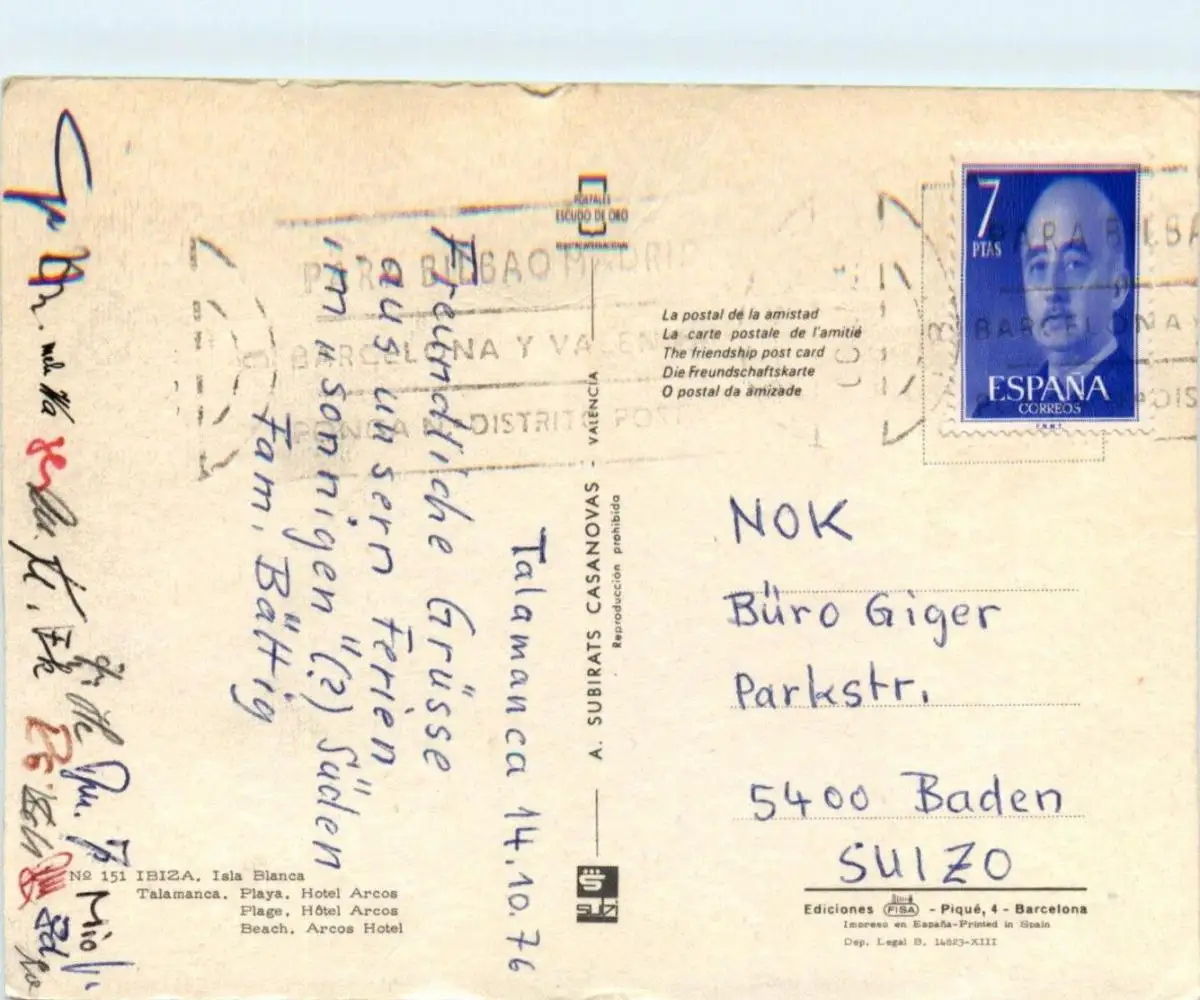 Talamanca 14.10.76
Freundliche Grüsse
aus unsern Ferien
im "sonnigen" (?) Süden
Fam. Bättig
POSTALES
ESCUDO DE ORO
PARA BILBAO MADRID
BARCELONA Y VALENCIA
PONGA Nº DISTRITO POSTAL
La postal de la amistad
La carte postale de l'amitié
The friendship post card
Die Freundschaftskarte
O postal da amizade
A. SUBIRATS CASANOVAS - VALENCIA
Reproducción prohibida
7
PTAS
ESPAÑA
CORREOS
F.N.M.T.
PARA BILBA
BARCELONA
DIS
NOK
Büro Giger
Parkstr.
5400 Baden
SUIZO
Nº 151 IBIZA. Isla Blanca
Talamanca. Playa. Hotel Arcos
Plage. Hôtel Arcos
Beach. Arcos Hotel
Ediciones FISA - Piqué, 4 - Barcelona
Impreso en España-Printed in Spain
Dep. Legal B. 14823-XIII